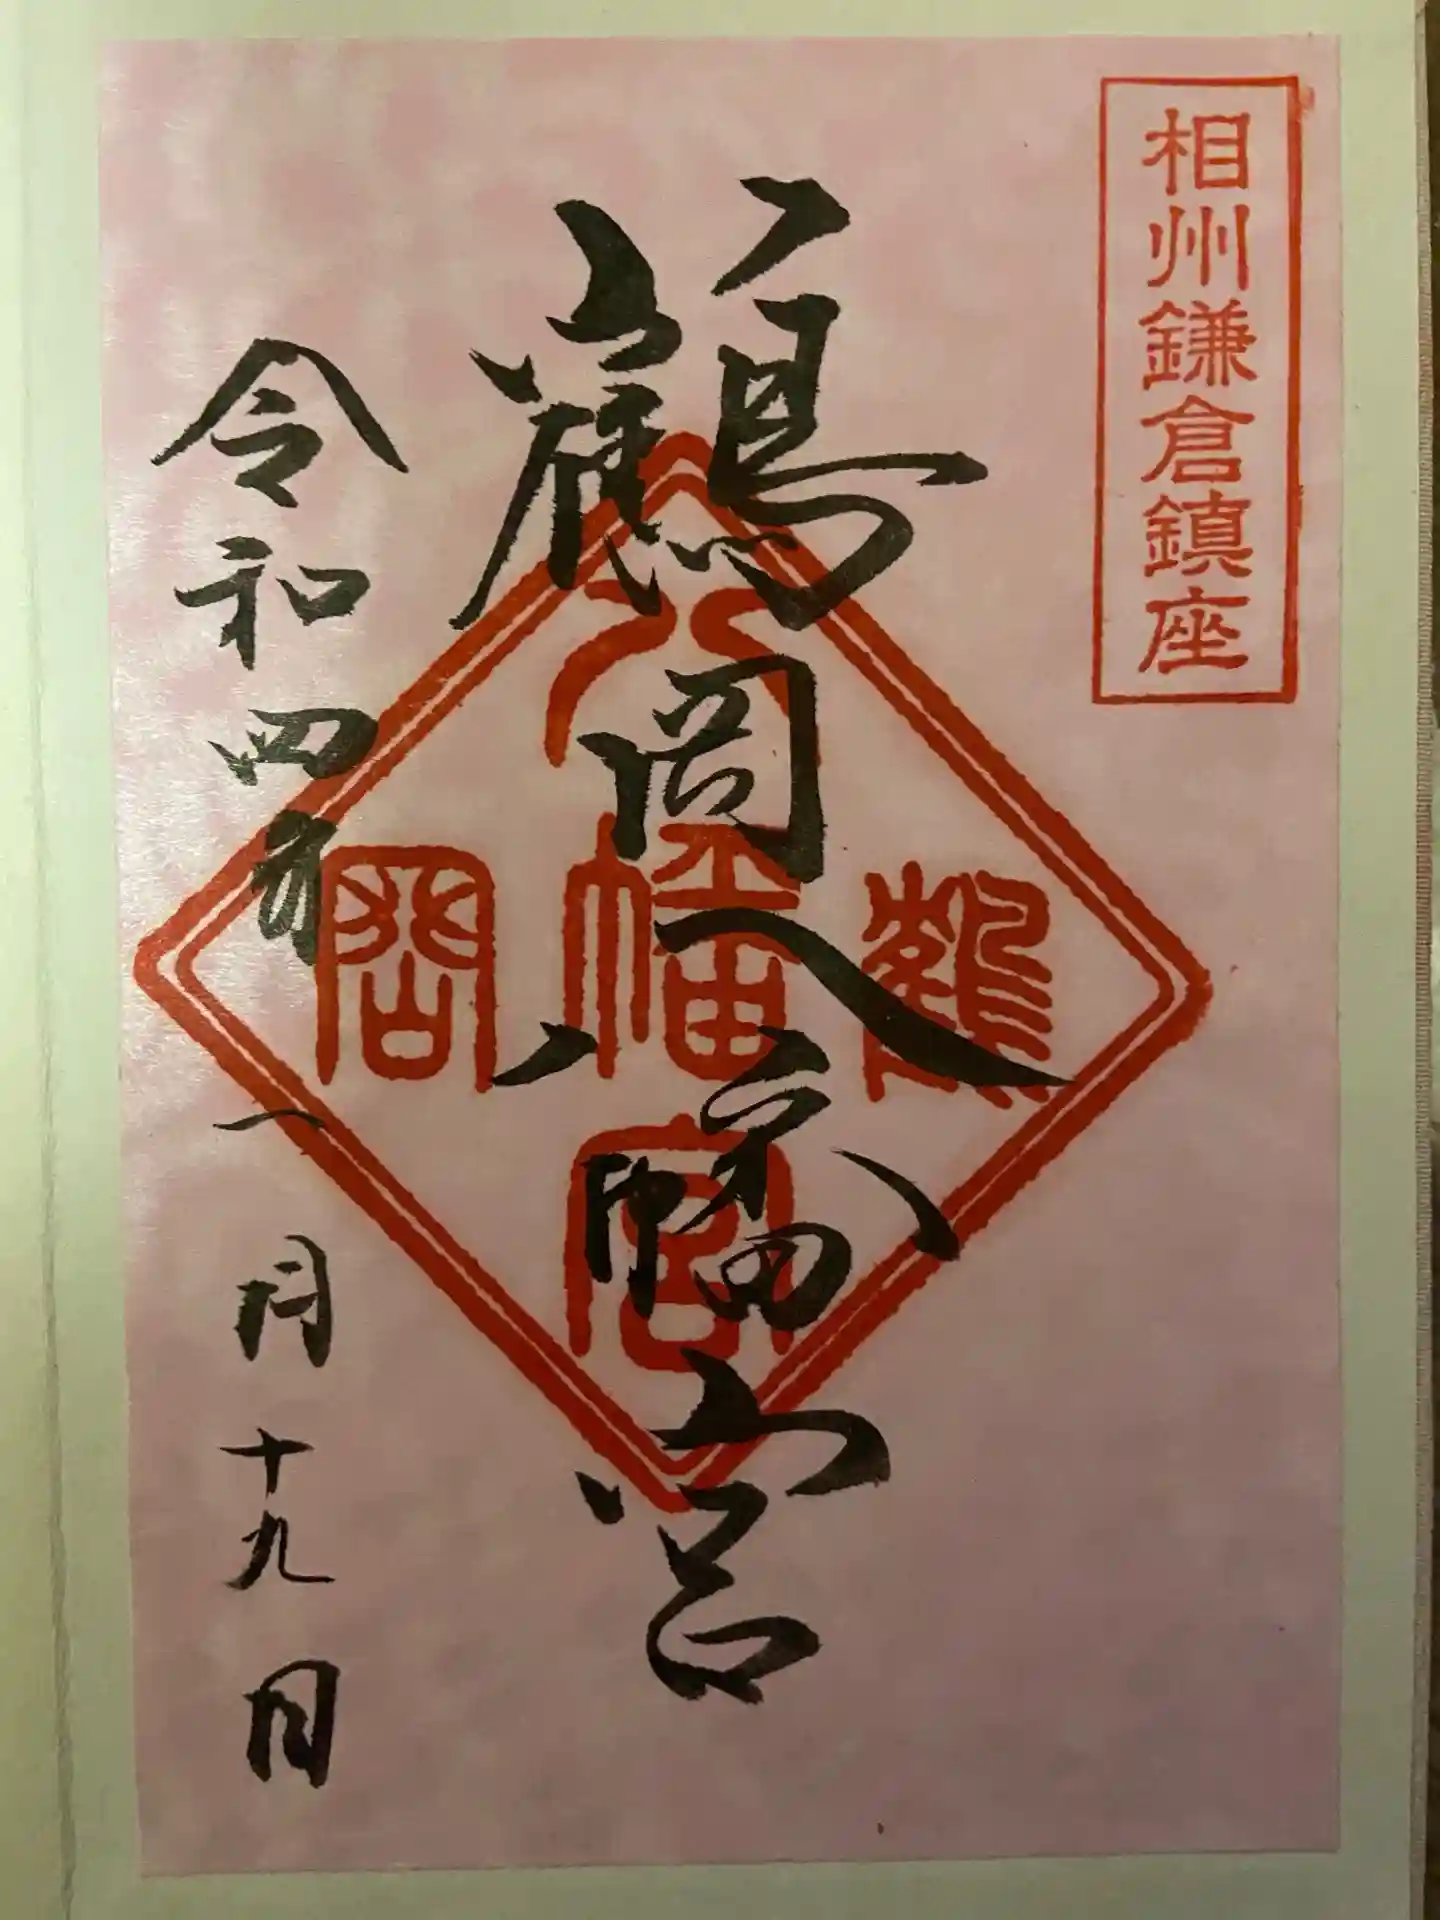 相州鎌倉鎮座
鶴岡八幡宮
八
鶴幡岡
宮
令和四年一月十九日